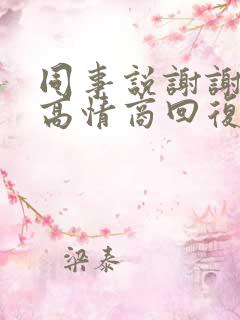 同事説謝謝
高情商回復
梁泰